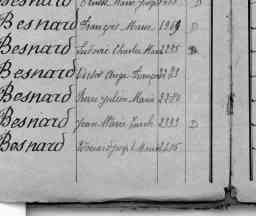 Besnard Marie Joseph
Besnard François Marie 1969 D
Besnard Ludovic Charles Marie 2235 D
Besnard Victor Ange François 2283
Besnard Pierre Julien Marie 2280
Besnard Jean Marie 2333 D
Besnard Edouard Joseph Marie